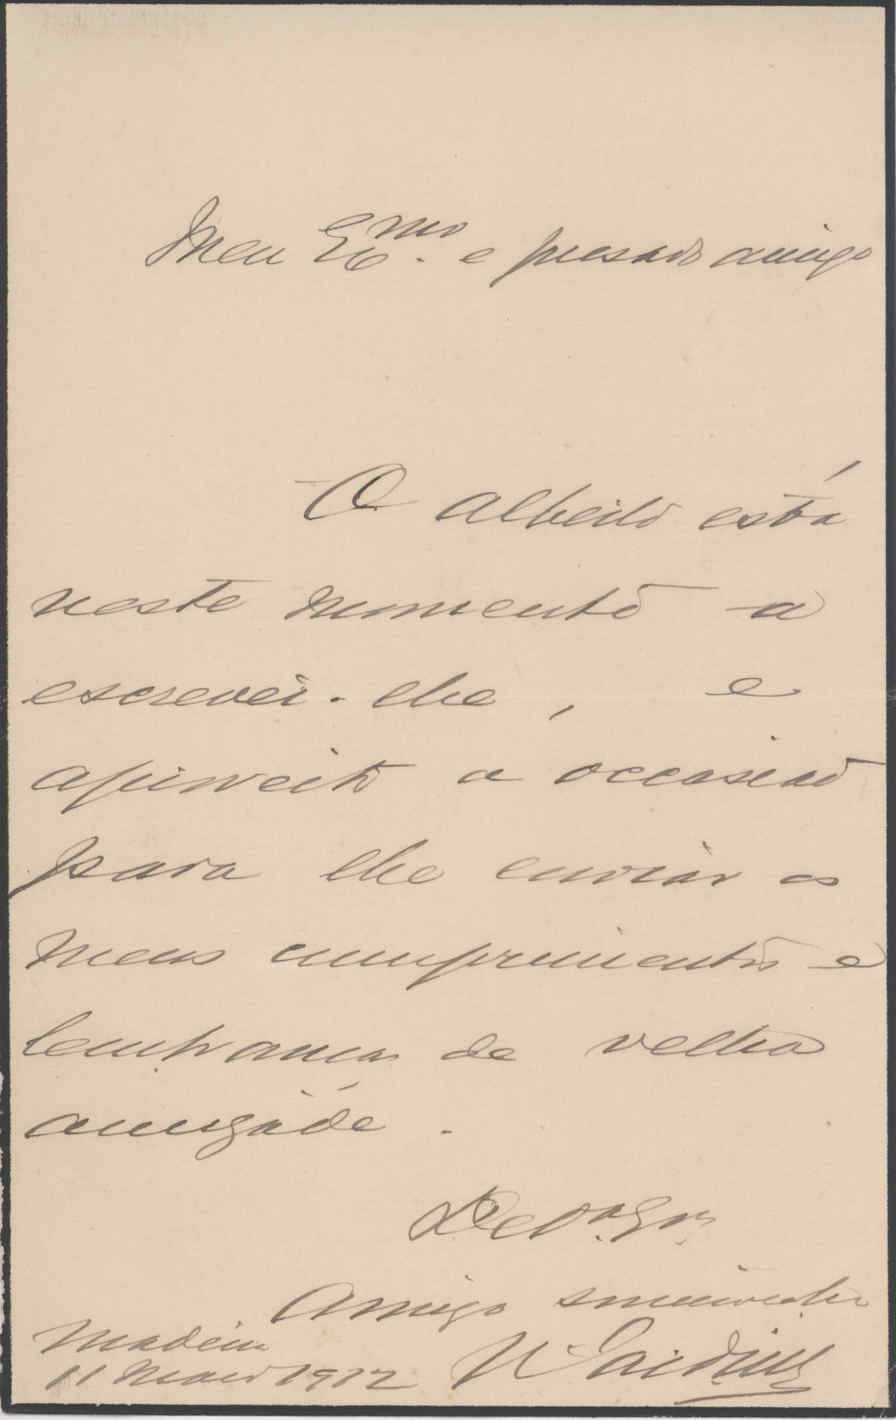 Meu Exmo. e presado amigo
O Alberto está
neste momento a
escrever-lhe, e
aproveito a occasião
para lhe enviar os
meus cumprimentos e
lembranças de velha
amizade.
De V. Exª
Amigo
Madeira
11 Março 1912